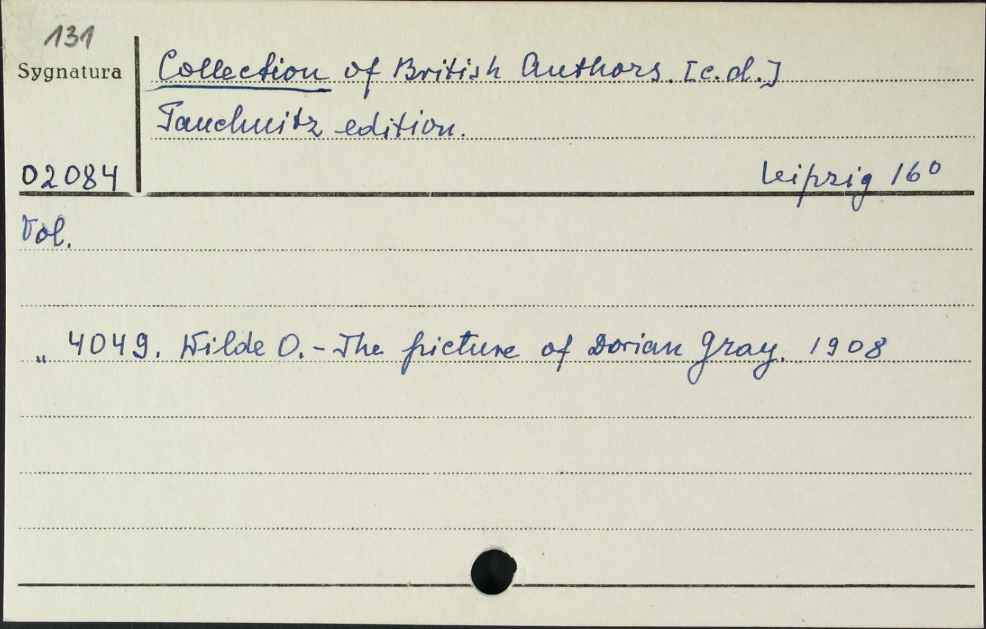 131
Sygnatura
Collection of British Authors. [c.d.]
Tauchnitz edition.
02084
Leipzig 16⁰
Vol.
„ 4049. Wilde O. - The picture of Dorian Gray. 1908